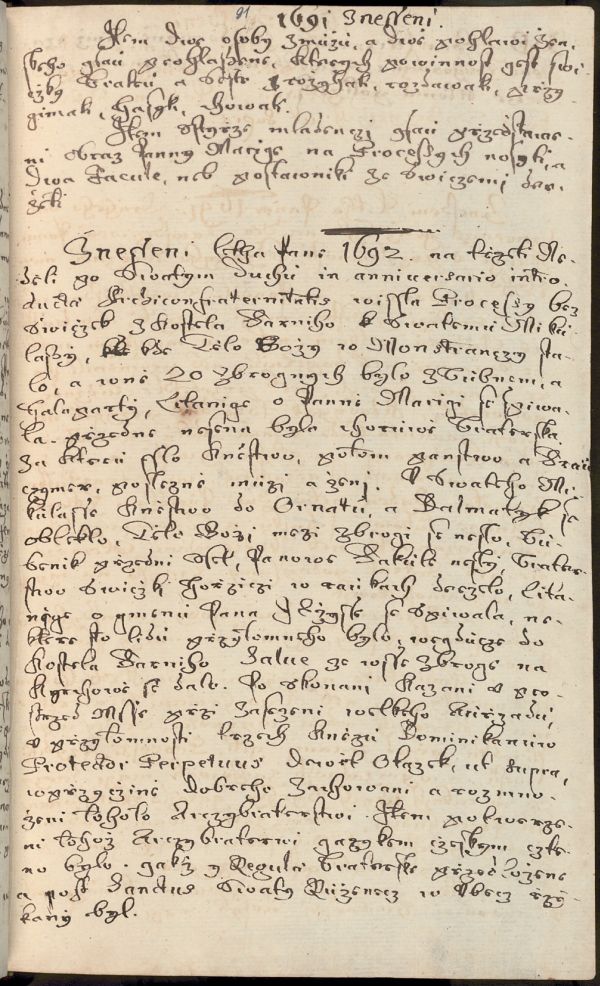 91
1691 Znesseni.
Item dwe osoby z mužu, a dwe pohlawi žen-
skeho gsau prohlassene, kterych powinnost gest swi-
czky Bratru a Sester rozžyhat, rozdawat, przy-
gimati, hasyt, chowat.
Item cztyrze mladenczy gsau przedstawe-
ni Obraz Panny Marige na Processych nosyti, a
dwa Facule, neb postawniky ze Swiczemi der-
žeti
Znesseni letha Pane 1692. na trzeti Ne-
deli po Swatym Duchu in anniversario intro-
ducta Archiconfraternitatis wyssla Processy bez
Swiczek z Kostela Farniho k Swatemu Miku-
lassy, kde Tielo Božy w Monstranczy sta-
lo, a wuně 20 Zbrognych bylo z Bubnem, a
halaparty, Litanige o Panne Marigi se spiwa-
la. przedne nesena byla chorauwe Braterska
za kterau sslo knestwo, potom panstwo a Brau
czymer, poslezne muži a ženj. U Swateho Mi-
kulasse knestwo do Ornatu, a Dalmatyk se
obleklo, Tielo Boži mezi zbrogj se neslo, Bu-
benik przedni ssel, Panowe Baldek nesly, Brater-
stwo Swiczky horziczi w raukach drzelo, Lita-
nige o gmenu Pana Gežysse se spiwala, ne-
ktere sto lidu przytomneho bylo, wegducze do
Kostela Farniho Salue ze wsse zbroge na
Kyrchowe se dalo. Po skonani Kazani a pro-
strzed Msse przi zasezeni welkeho Aurzadu,
a przytomnosti trzech Knezu Dominikanuw
Protector Perpetuus Dawel Otazek, ut supra,
w przyczine dobreho zachowani a rozmno-
ženi tohoto Arczybraterstwi. Item potwrze-
ni tehož Arczybraterstwi gazykem czeskym czte-
no bylo. gakž y Regule Braterske przedložene
a post Sanctus Swaty Ruženecz w Obecz rzy-
kany byl.